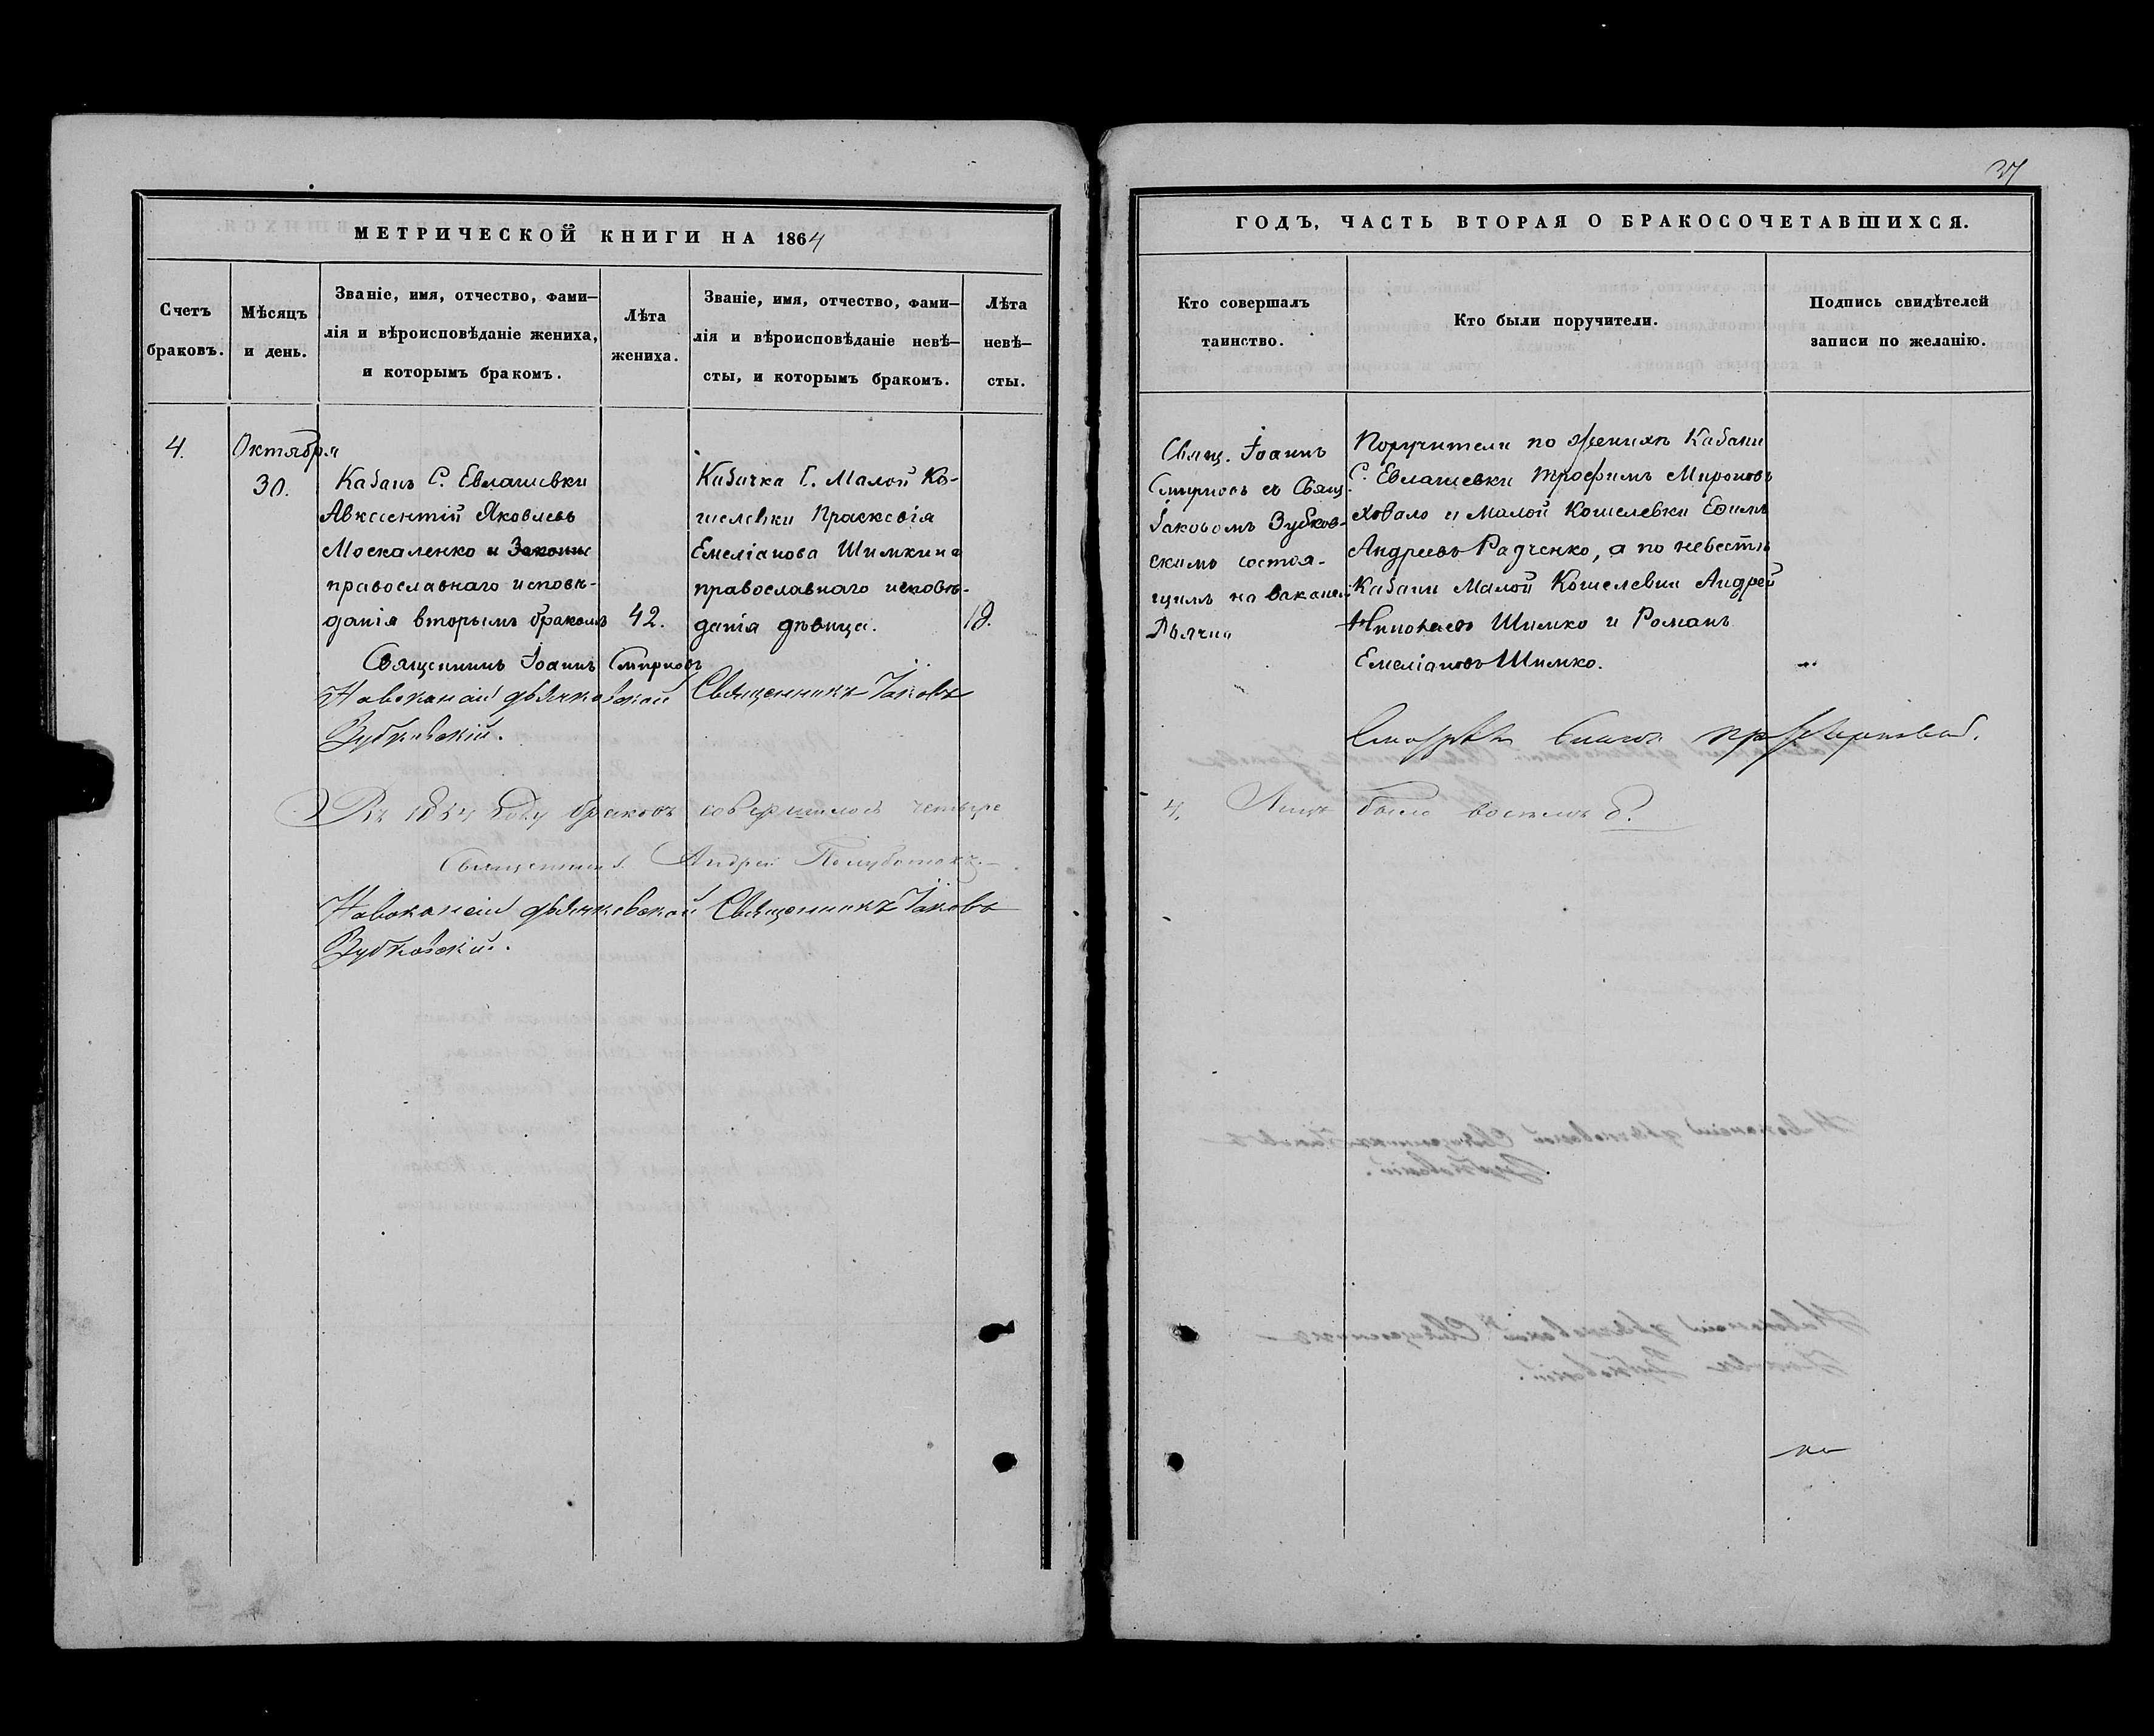 37
МЕТРИЧЕСКОЙ КНИГИ НА 1864
Счетъ
браковъ.
Мѣсяцъ
и день.
Званіе, имя, отчество, фами—
лія и вѣроисповѣданіе жениха,
и которымъ бракомъ.
Лѣта
жениха.
Званіе, имя, отчество, фами—
лія и вѣроисповѣданіе невѣ—
сты, и которымъ бракомъ.
Лѣта
невѣ—
сты.
4.
Октября
30.
Козакъ С. Евлашевки
Авксентій Яковлевъ
Москаленко и
православнаго исповѣ-
данія вторымъ бракомъ
42.
Козачка С. Малой Ко-
шелевки Праскевія
Емеліанова Шимкина
православнаго исповѣ-
данія дѣвица.
19.
Священникъ Іоаннъ Смирновъ
На вокансіи дьячковской Священникъ Іаковъ
Зубковскій.
Въ 1864 году браковъ совершилось четыре
Священникъ Андрей Полуботокъ.
На вокансіи дьячковской Священникъ Іаковъ
Зубковскій.
ГОДЪ, ЧАСТЬ ВТОРАЯ О БРАКОСОЧЕТАВШИХСЯ.
Кто совершалъ
таинство.
Кто были поручители.
Подпись свидѣтелей
записи по желанію.
Свящ. Іоаннъ
Смирновъ съ Свящ.
Іаковомъ Зубков-
скимъ состоя-
щимъ на вакансіи
Поручители по женихѣ Козаки
С. Евлашевки Трофимъ Мироновъ
и Малой Кошелевки Ефимъ
Андреевъ Радченко, а по невестѣ
Козаки Малой Кошелевки Андрей
Шимко и Романъ
Емеліановъ Шимко.
4. Лицъ было восемь 8.